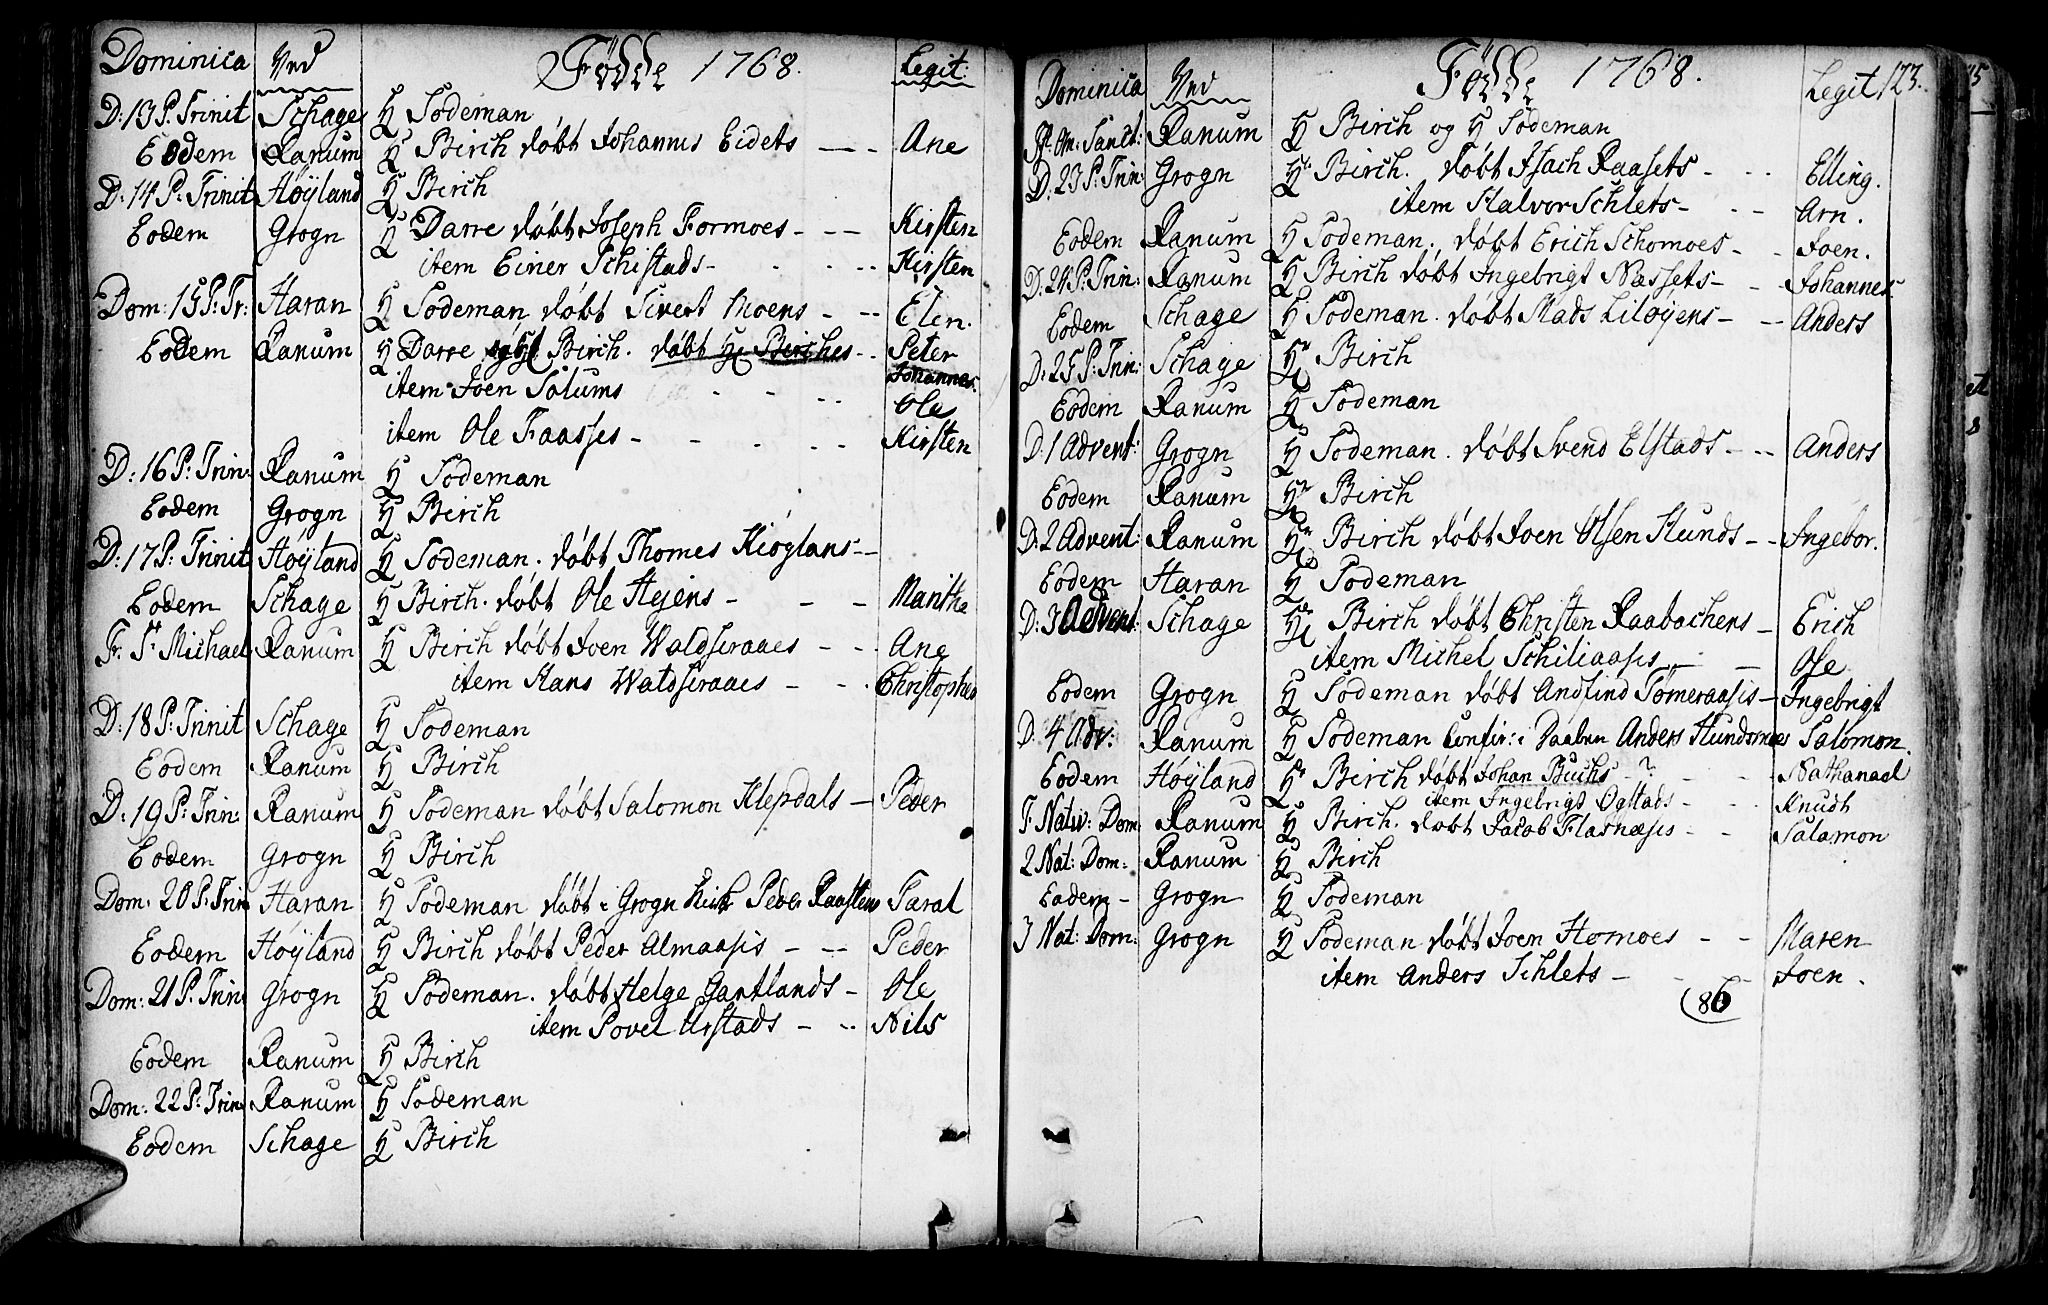 Dominica Ved Födde 1768. Legit:
D: 13 P. Trinit Schage H Sodeman
Eodem Ranum H Birch døbt Johannes Eidets - - Ane
D: 14 P: Trinit Høyland H Birch
Eodem Grogn H Darre døbt Joseph Formoes - - - Kirsten
item Einer Schistads - - - - Kirsten
Dom: 15 P: Tr: Haran H Sodeman døbt Sivert Moens - - - Elen.
Eodem Ranum H Darre og H Birch. døbt H Birches - - Peter Johannes.
item Joen Solums - - - Ole
item Ole Faasses - - - - - Kirsten
D: 16 P: Trin: Ranum H Sodeman
Eodem Grogn H Birch
D: 17 P: Trinit Høyland H Sodeman. døbt Thomes Kiøglans - -
Eodem Schage H Birch. døbt Ole Hejens - - - Marithe
Fr. St Michael Ranum H Birch døbt Joen Waldseraaes - - - Ane
item Hans Waldseraaes - - - Christopher
D: 18 P: Trinit Schage H Sodeman
Eodem Ranum H Birch
D: 19 P: Trin: Ranum H Sodeman døbt Salomon Klepdals - Peder
Eodem Grogn H Birch
Dom: 20 P: Trin Haran H Sodeman døbt i Grogn Kirk Peder Raastens Saral
Eodem Høyland H Birch døbt Peder Almaasis - - - Peder
Dom: 21 P: Trin: Grogn H Sodeman. døbt Helge Gartlands - Ole
item Povel Urstads - - - Nils
Eodem Ranum H Birch
Dom: 22 P: Trin: Ranum H Sodeman
Eodem Schage H Birch
Dominica Ved Födde 1768. Legit 123.
F. Om: Sanct: Ranum H Birch og H Sodeman
D. 23 P: Trin: Grogn Hr Birch. døbt Isach Raasets - - - Elling.
item Halvor Schlets - - - Arn.
Eodem Ranum H Sodeman. døbt Erich Schomoes - - Joen.
D: 24 P: Trin: Ranum H Birch døbt Ingebrigt Nassets - - - Johannes
Eodem Schage H Sodeman. døbt Mads Liløyens - - - Anders
D: 25 P: Trin: Schage Hr Birch
Eodem Ranum H Sodeman
D: 1 Advent: Grogn H Sodeman. døbt Svend Elstads - - - Anders
Eodem Ranum Hr Birch
D: 2 Advent: Ranum Hr Birch døbt Joen Olsen Hunds - - Ingebor.
Eodem Haran H Sodeman
D: 3 Advent: Schage Hr Birch døbt Christen Raabachens - Erich
item Michel Schiliaasis - - Ole
Eodem Grogn H Sodeman døbt Andfind Tømeraasis - Ingebrigt
D. 4 Adv: Ranum H Sodeman Confir: i Daaben Anders Hundsmoes Salomon.
Eodem Høyland Hr Birch døbt Johan Buchs - ? - - - Nathanael
item Ingebrigt Ogstads - - - Knudt
F. Nativ: Dom: Ranum H Birch. døbt Jacob Flasnæsis - - Salamon
2 Nat: Dom: Ranum H Birch
Eadem - Grogn H Sodeman
3 Nat: Dom: Grogn H Sodeman døbt Joen Homoes - - Maren
item Anders Schlets - - - Joen.
86